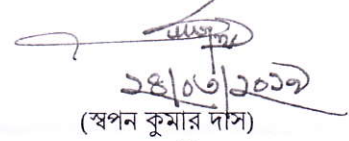 ২৪|০৩|২০১৯
(স্বপন কুমার দাস)